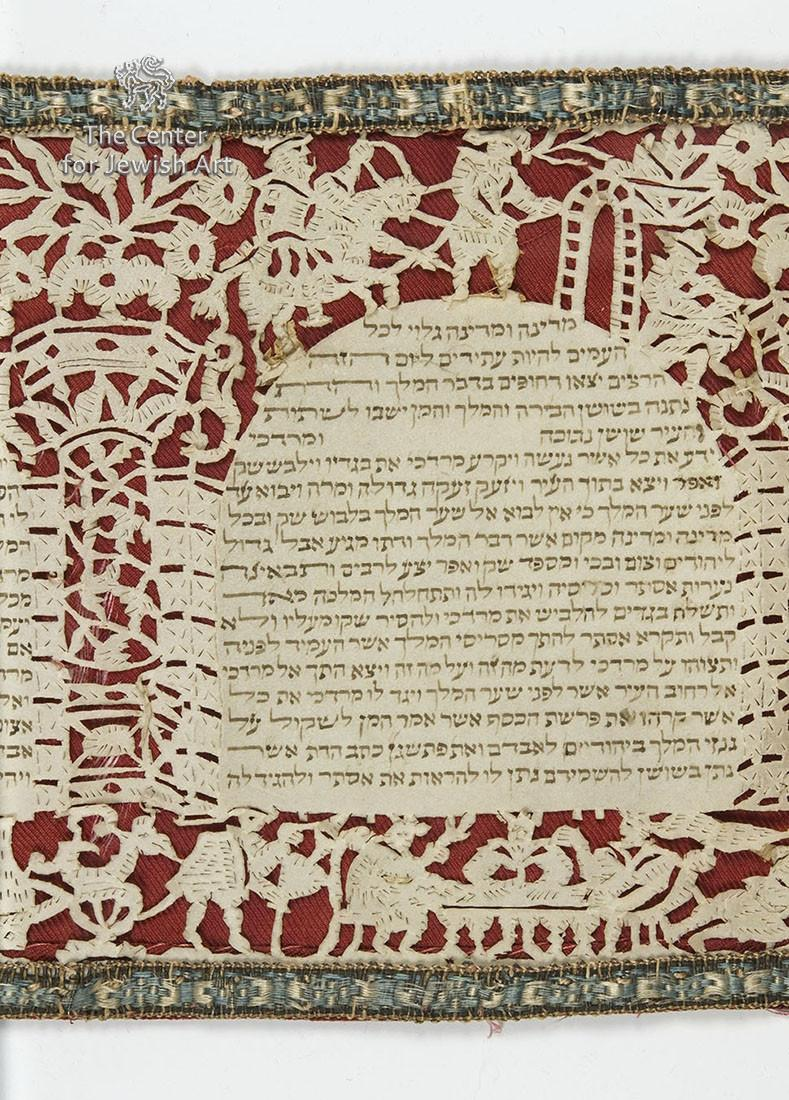 The Center
for Jewish Art
מדינה ומדינה גלוי לכל
העמים להיות עתידים ליום הזה
הרצים יצאו דחופים בדבר המלך והדת
נתנה בשושן הבירה והמלך והמן ישבו לשתות
והעיר שושן נבוכה ומרדכי
ידע את כל אשר נעשה ויקרע מרדכי את בגדיו וילבש שק
ואפר ויצא בתוך העיר ויזעק זעקה גדולה ומרה ויבוא עד
לפני שער המלך כי אין לבוא אל שער המלך בלבוש שק ובכל
מדינה ומדינה מקום אשר דבר המלך ודתו מגיע אבל גדול
ליהודים וצום ובכי ומספד שק ואפר יצע לרבים ותבואינה
נערות אסתר וסריסיה ויגידו לה ותתחלחל המלכה מאד
ותשלח בגדים להלביש את מרדכי ולהסיר שקו מעליו ולא
קבל ותקרא אסתר להתך מסריסי המלך אשר העמיד לפניה
ותצוהו על מרדכי לדעת מה זה ועל מה זה ויצא התך אל מרדכי
אל רחוב העיר אשר לפני שער המלך ויגד לו מרדכי את כל
אשר קרהו ואת פרשת הכסף אשר אמר המן לשקול על
גנזי המלך ביהודיים לאבדם ואת פתשגן כתב הדת אשר
נתן בשושן להשמידם נתן לו להראות את אסתר ולהגיד לה